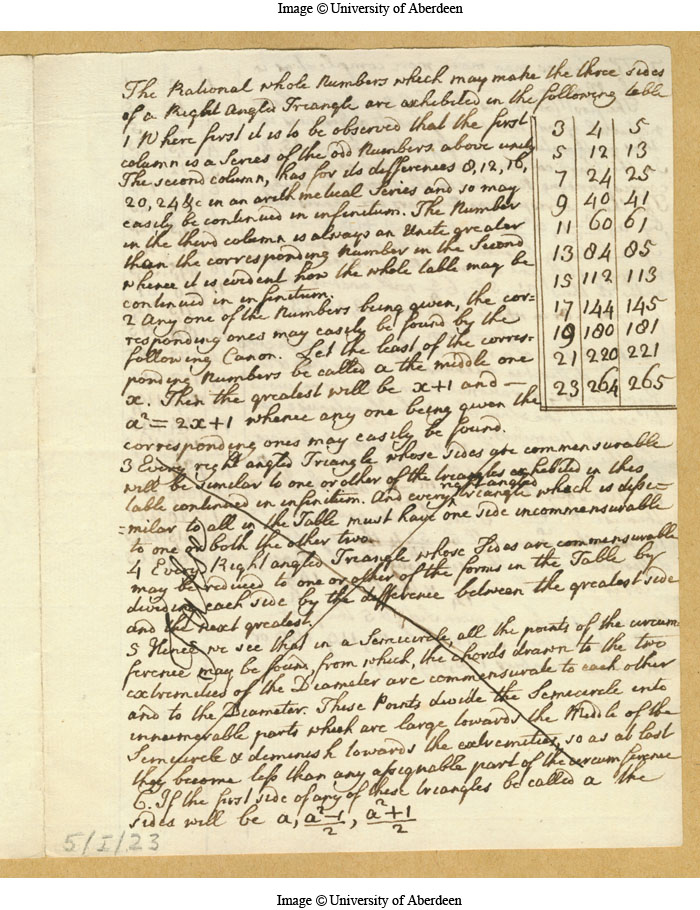 Image © University of Aberdeen
The Rational whole Numbers which may make the three sides
of a Right Angled Triangle are exhibited in the following table
1 Where first it is to be observed that the first
column is a Series of the odd Numbers above unity
The second column, has for its differences 8, 12, 16,
20, 24 &c in an arithmetical Series and so may
easily be continued in infinitum. The Number
in the third column is always an Unite greater
than the corresponding Number in the Second
whence it is evident how the whole table may be
continued in infinitum.
2 Any one of the Numbers being given, the cor=
responding ones may easily be found by the
following Canon. Let the least of the corres-
ponding Numbers be called a the middle one
x. Then the greatest will be x+1 and —
a² = 2x+1 whence any one being given the
corresponding ones may easily be found.
3 4 5
5 12 13
7 24 25
9 40 41
11 60 61
13 84 85
15 112 113
17 144 145
19 180 181
21 220 221
23 264 265
3 Every right angled Triangle whose sides are commensurable
will be similar to one or other of the triangles exhibited in this
table continued in infinitum. And every right angled triangle which is dissi=
=milar to all in the Table must have one side incommensurable
to one or both the other two.
4 Every Right angled Triangle whose Sides are commensurable
may be reduced to one or other of the forms in the Table by
dividing each side by the difference between the greatest side
and the next greatest.
5 Hence we see that in a Semicircle, all the points of the circum-
ference may be found, from which, the chords drawn to the two
extremities of the Diameter are commensurate to each other
and to the Diameter. These Points divide the Semicircle into
innumerable parts which are large towards the Middle of the
Semicircle & diminish towards the extremities, so as at last
they become less than any assignable part of the circumference
6. If the first side of any of these triangles be called a the
sides will be a, a²-1/2, a²+1/2
5/I/23
Image © University of Aberdeen